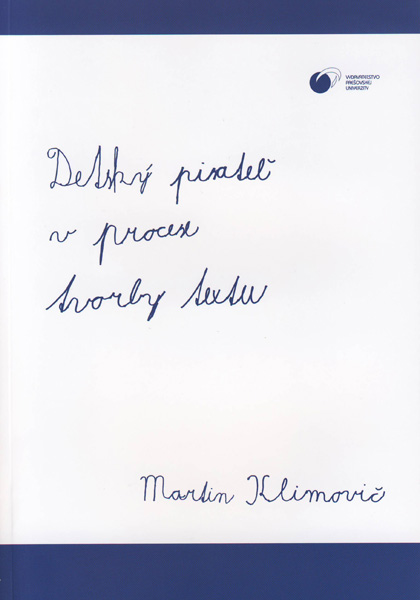 VYDAVATEĽSTVO
PREŠOVSKEJ
UNIVERZITY
Detský pisateľ
v procese
tvorby textu
Martin Klimovič